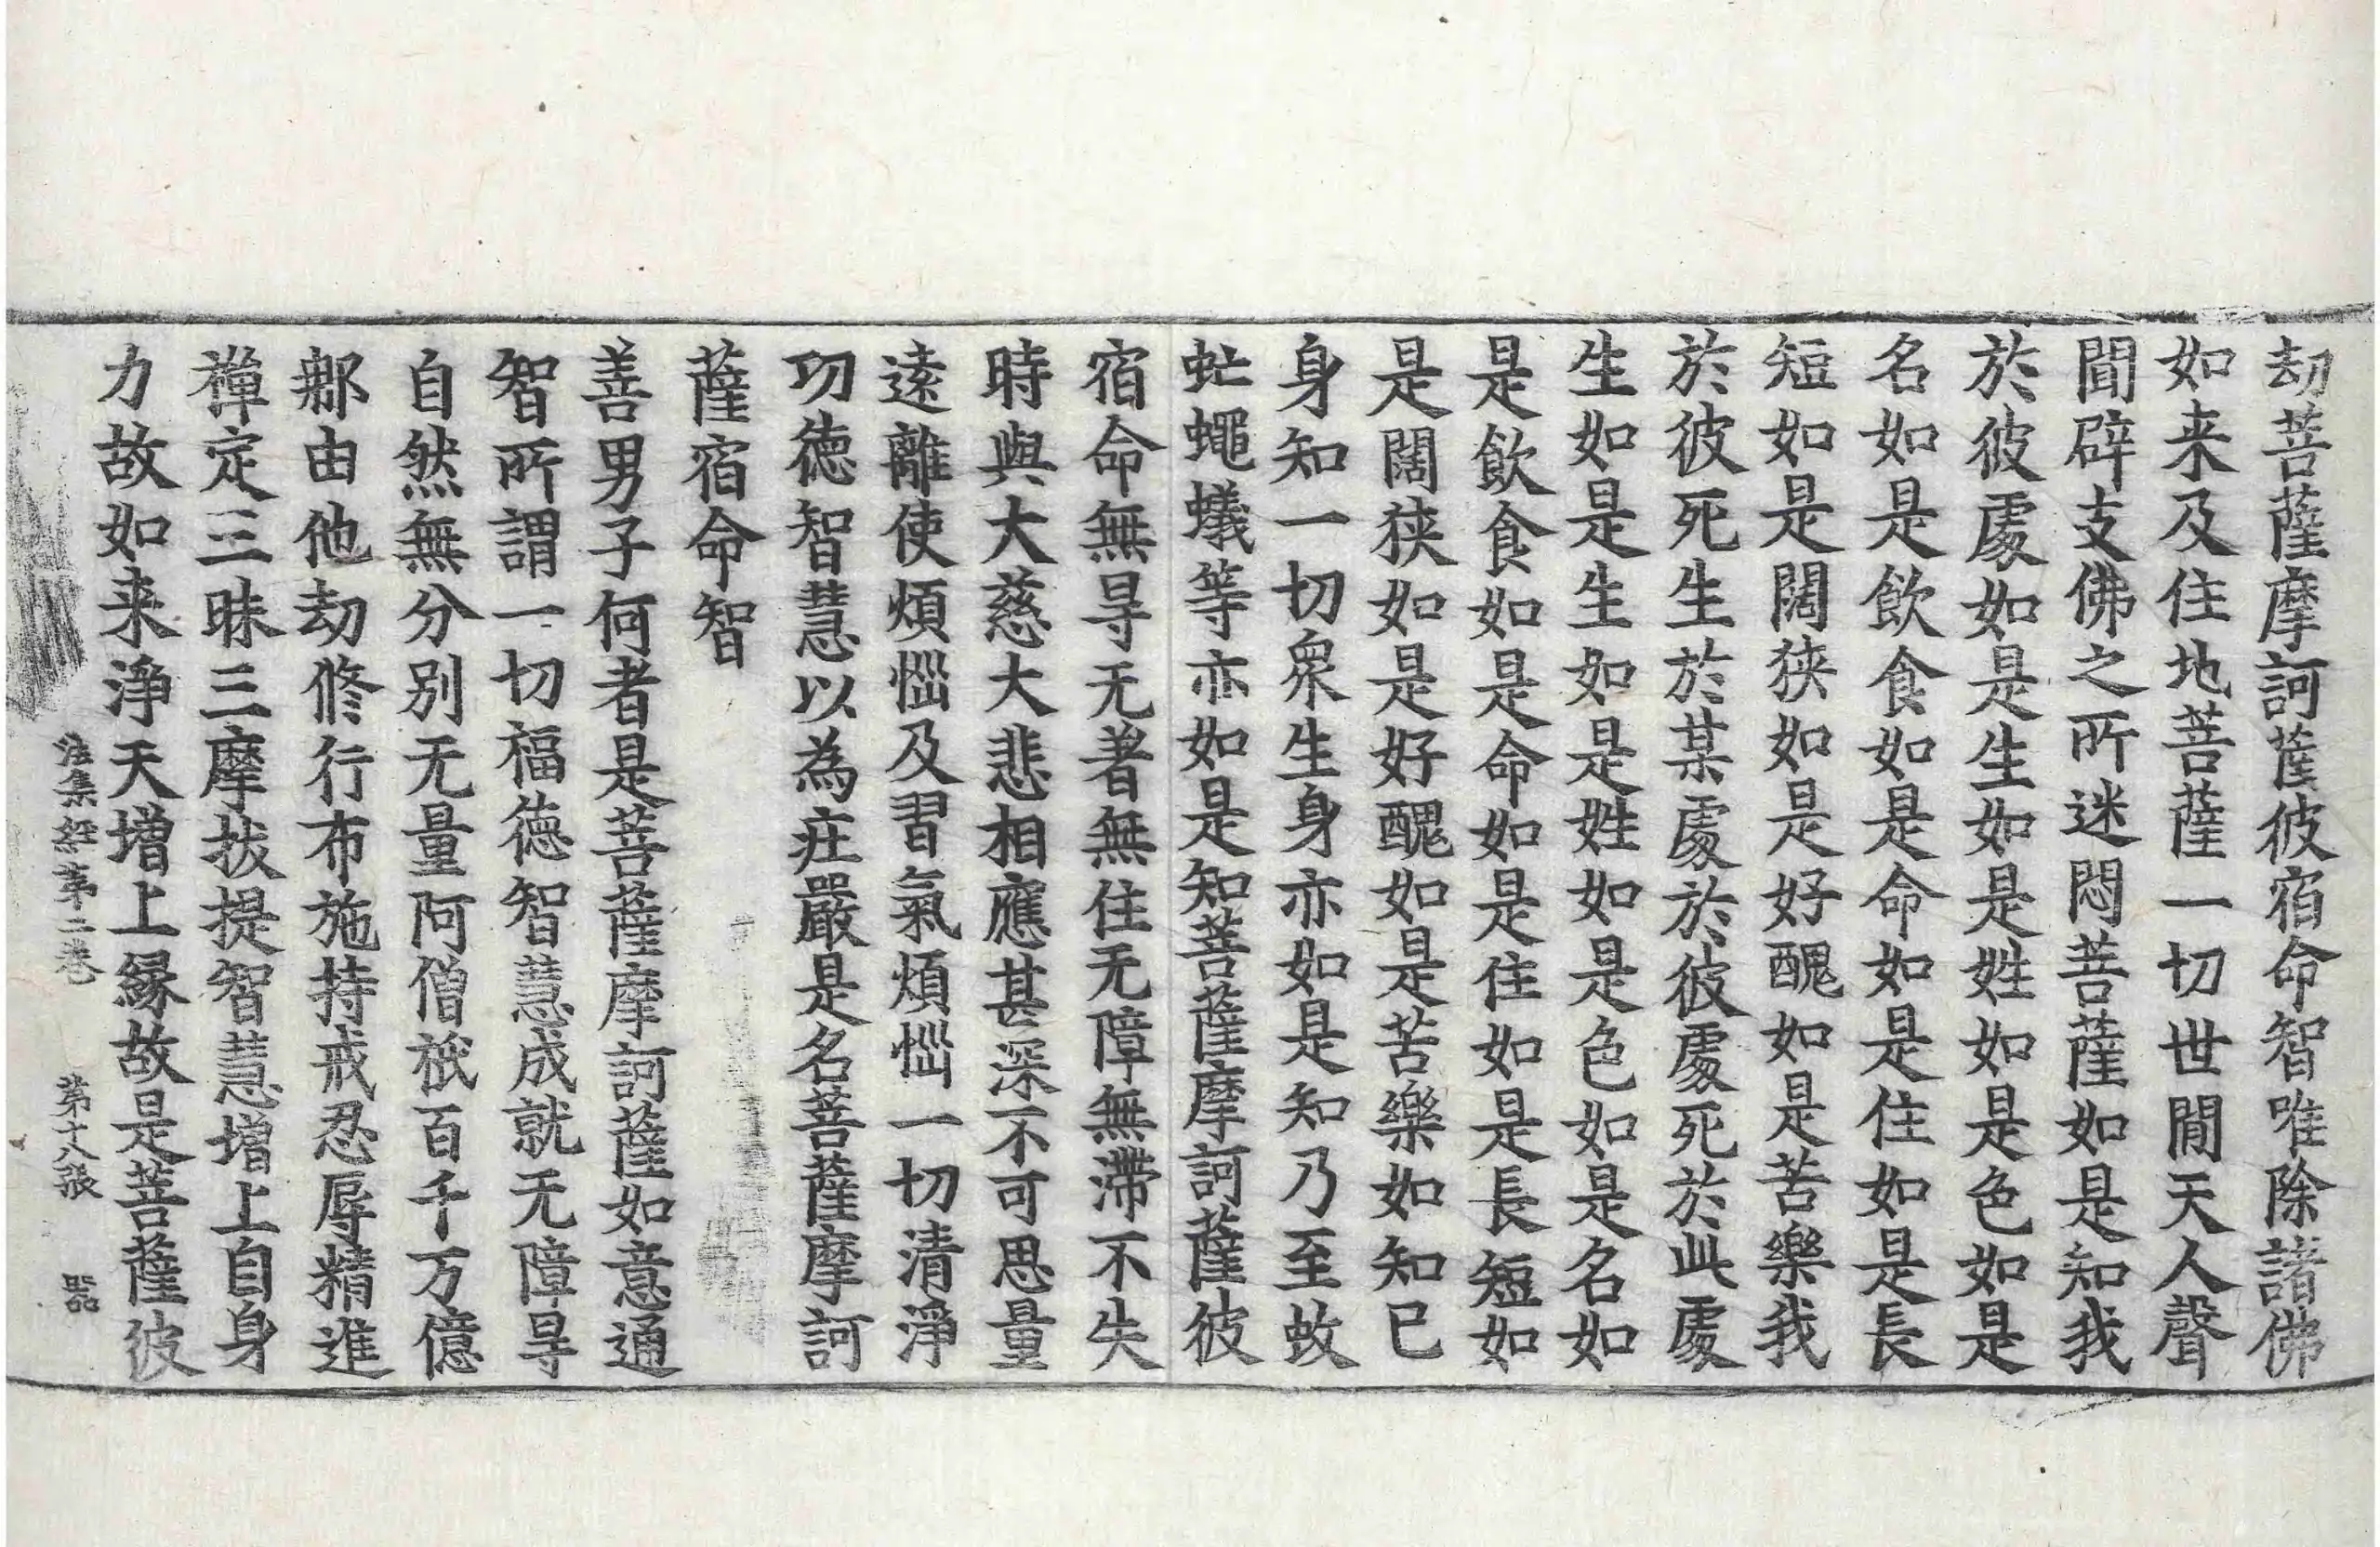 劫菩薩摩訶薩彼宿命智唯除諸佛
如来及住地菩薩一切世間天人聲
聞辟支佛之所迷悶菩薩如是知我
於彼處如是生如是姓如是色如是
名如是飲食如是命如是住如是長
短如是闊狹如是好醜如是苦樂我
於彼死生於某處於彼處死於此處
生如是生如是姓如是色如是名如
是飲食如是命如是住如是長短如
是闊狹如是好醜如是苦樂如知已
身知一切衆生身亦如是知乃至蚊
虻蠅蟻等亦如是知菩薩摩訶薩彼
宿命無㝵无著無住无障無滯不失
時與大慈大悲相應甚深不可思量
遠離使煩惱及習氣煩惱一切清淨
功德智慧以為莊嚴是名菩薩摩訶
薩宿命智
善男子何者是菩薩摩訶薩如意通
智所謂一切福德智慧成就无障㝵
自然無分別无量阿僧祇百千万億
那由他劫修行布施持戒忍辱精進
禪定三昧三摩拔提智慧增上自身
力故如来淨天增上緣故是菩薩彼
法集經第二卷 第十八張 器